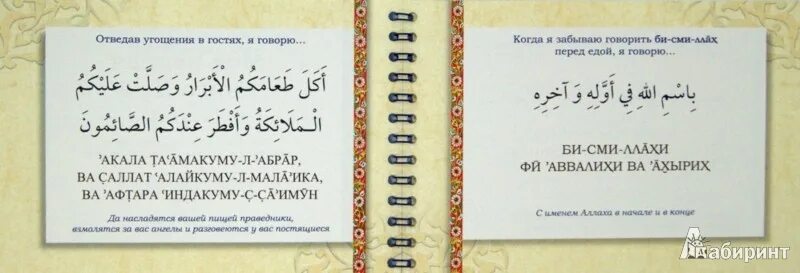 Отведав угощения в гостях, я говорю...
أَكَلَ طَعَامَكُمُ الْأَبْرَارُ وَصَلَّتْ عَلَيْكُمُ
الْمَلَائِكَةُ وَأَفْطَرَ عِنْدَكُمُ الصَّائِمُونَ
’АКАЛА Т̣А‘А̄МАКУМУ-Л-’АБРА̄Р,
ВА С̣АЛЛАТ ‘АЛАЙКУМУ-Л-МАЛА̄’ИКА,
ВА ’АФТ̣АРА ‘ИНДАКУМУ-С̣-С̣А̄’ИМӮН
Да насладятся вашей пищей праведники,
взмолятся за вас ангелы и разговеются у вас постящиеся
Когда я забываю говорить би-сми-лла̄х̣
перед едой, я говорю...
بِاسْمِ اللهِ فِي أَوَّلِهِ وَ آخِرِهِ
БИ-СМИ-ЛЛА̄Х̣И
ФӢ ’АВВАЛИХ̣И ВА ’А̄Х̮ЫРИХ̣
С именем Аллаха в начале и в конце
Лабиринт